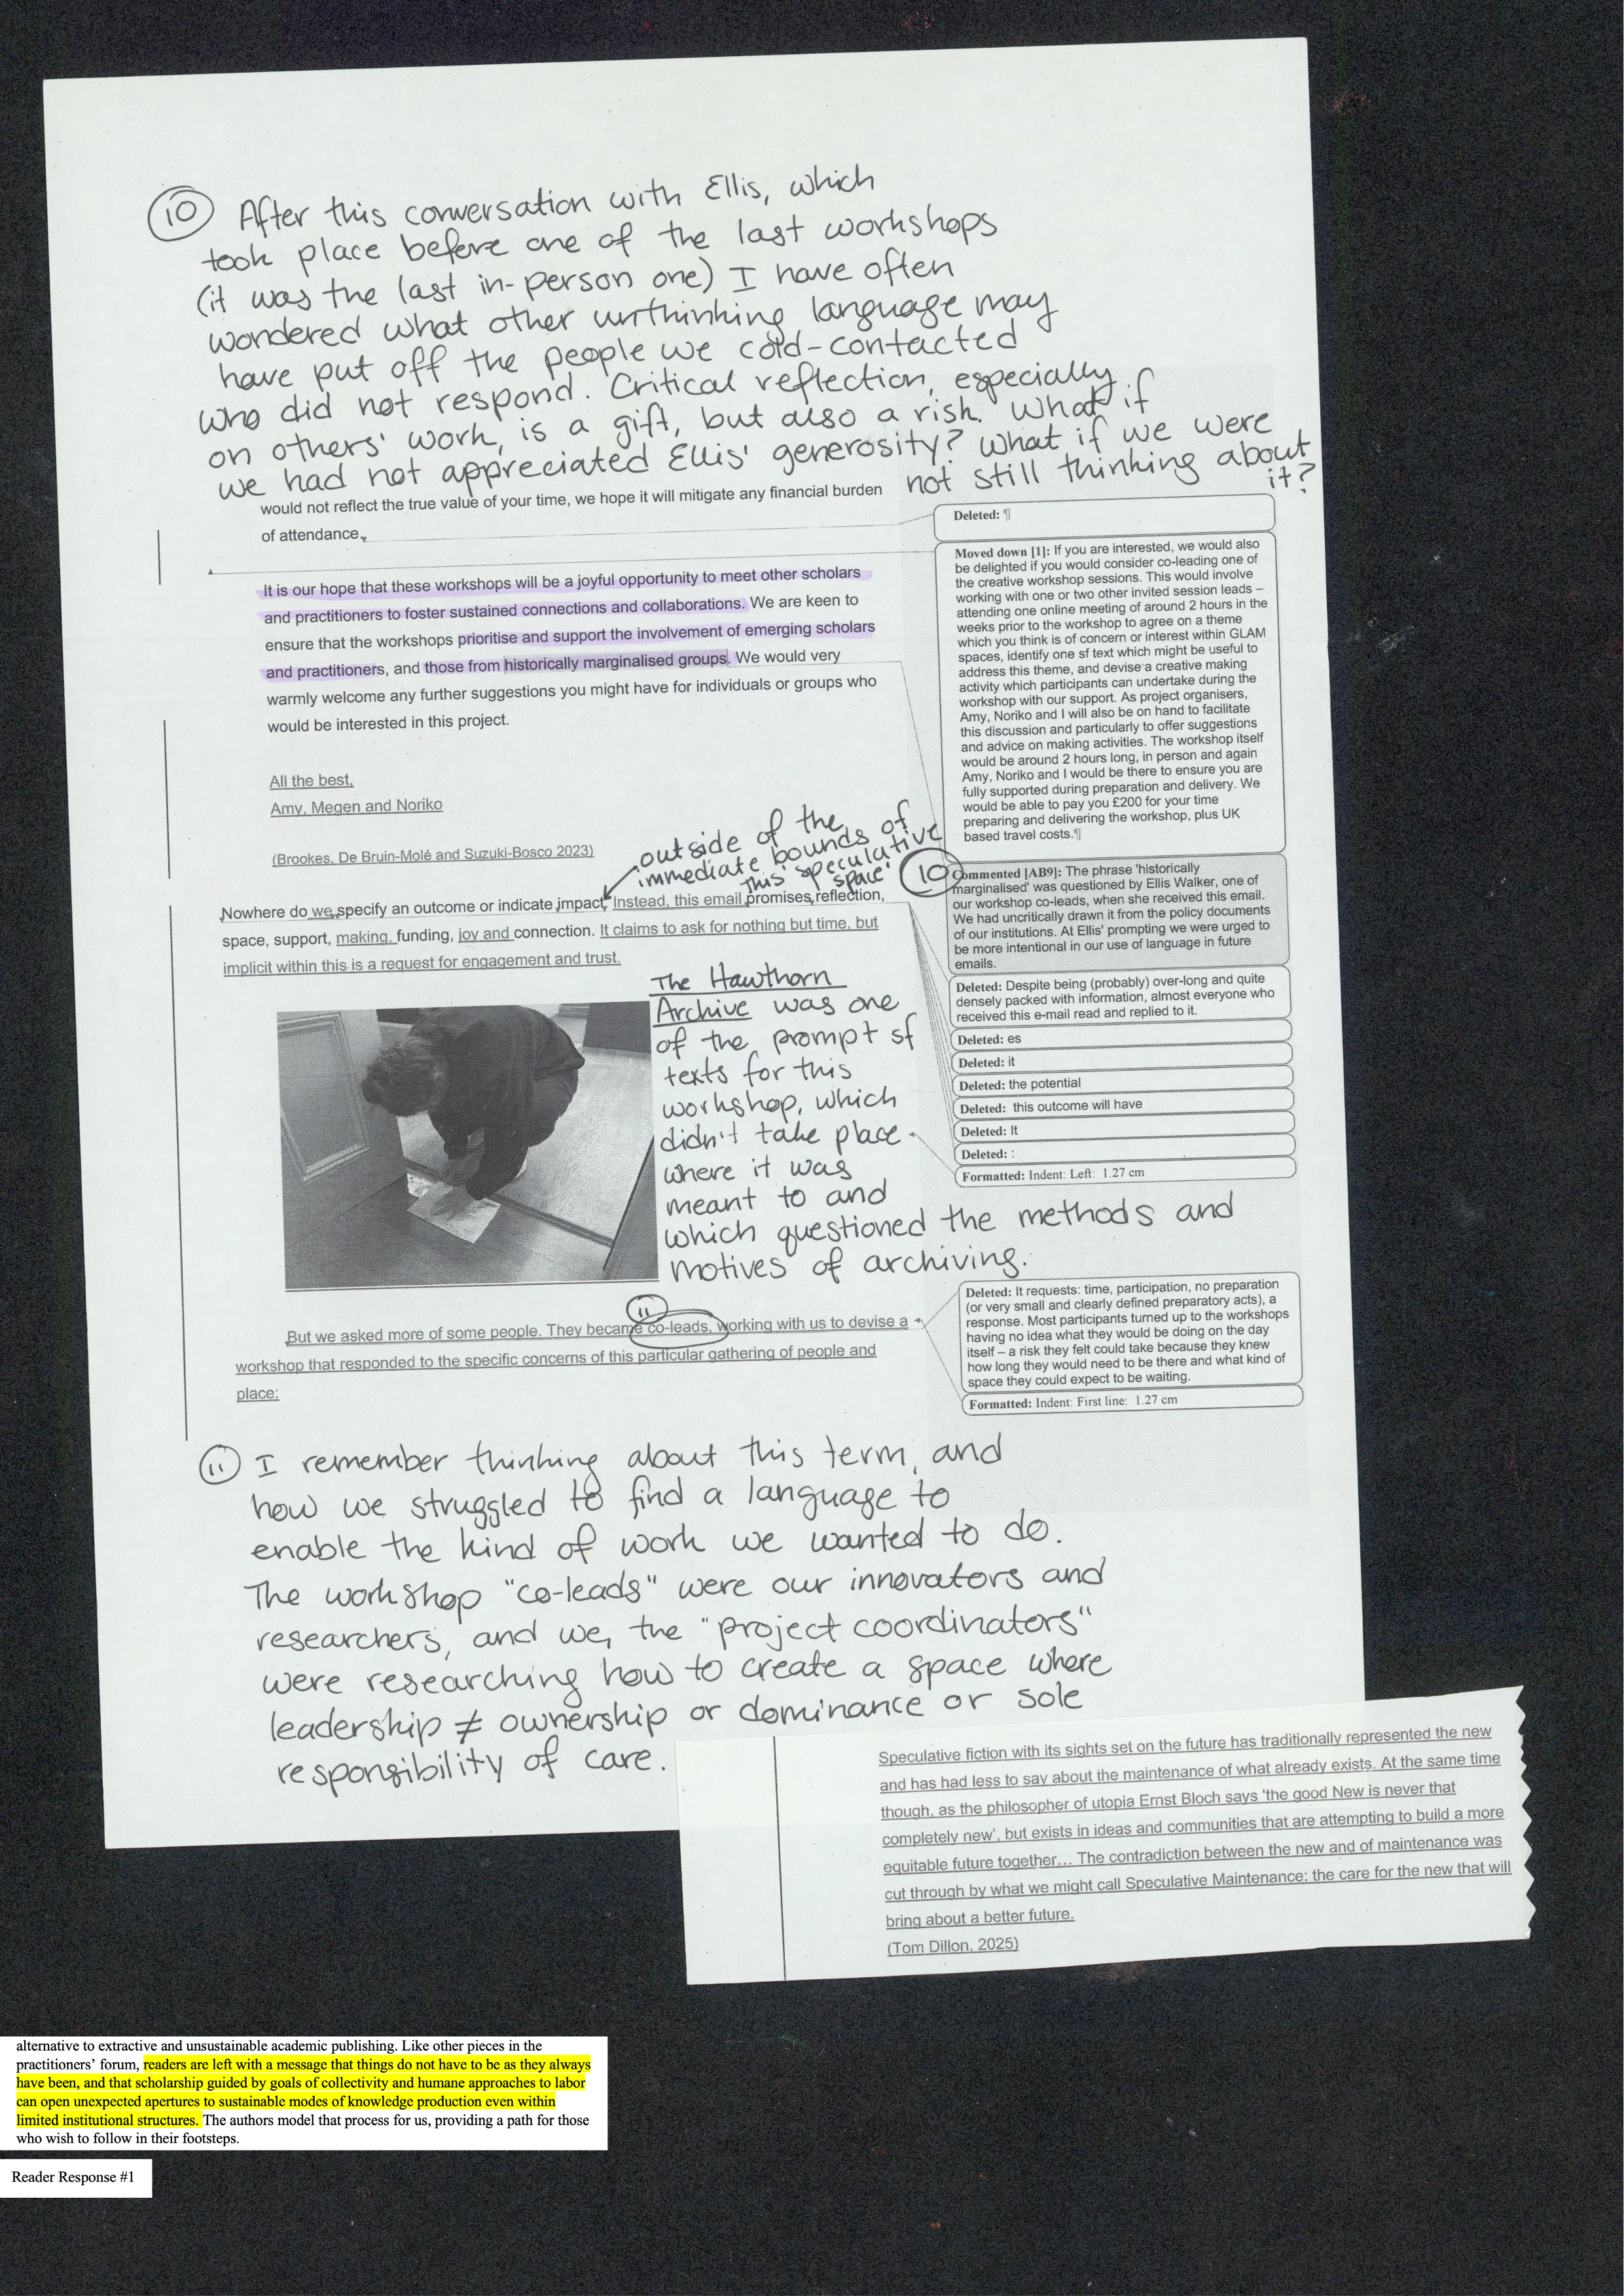 10 After this conversation with Ellis, which
took place before one of the last workshops
(it was the last in-person one) I have often
wondered what other unthinking language may
have put off the people we cold-contacted
who did not respond. Critical reflection, especially
on others' work, is a gift, but also a risk. What if
we had not appreciated Ellis' generosity? What if we were
not still thinking about
it?
would not reflect the true value of your time, we hope it will mitigate any financial burden
of attendance.
It is our hope that these workshops will be a joyful opportunity to meet other scholars
and practitioners to foster sustained connections and collaborations. We are keen to
ensure that the workshops prioritise and support the involvement of emerging scholars
and practitioners, and those from historically marginalised groups. We would very
warmly welcome any further suggestions you might have for individuals or groups who
would be interested in this project.
All the best,
Amy, Megen and Noriko
(Brookes, De Bruin-Molé and Suzuki-Bosco 2023)
outside of the
immediate bounds of
this speculative
space'
Nowhere do we specify an outcome or indicate impact. Instead, this email promises reflection,
space, support, making, funding, joy and connection. It claims to ask for nothing but time, but
implicit within this is a request for engagement and trust.
The Hawthorn
Archive was one
of the prompt sf
texts for this
workshop, which
didn't take place
where it was
meant to and
which questioned the methods and
motives of archiving.
11
But we asked more of some people. They became co-leads, working with us to devise a
workshop that responded to the specific concerns of this particular gathering of people and
place:
Deleted: ¶
Moved down [1]: If you are interested, we would also
be delighted if you would consider co-leading one of
the creative workshop sessions. This would involve
working with one or two other invited session leads –
attending one online meeting of around 2 hours in the
weeks prior to the workshop to agree on a theme
which you think is of concern or interest within GLAM
spaces, identify one sf text which might be useful to
address this theme, and devise a creative making
activity which participants can undertake during the
workshop with our support. As project organisers,
Amy, Noriko and I will also be on hand to facilitate
this discussion and particularly to offer suggestions
and advice on making activities. The workshop itself
would be around 2 hours long, in person and again
Amy, Noriko and I would be there to ensure you are
fully supported during preparation and delivery. We
would be able to pay you £200 for your time
preparing and delivering the workshop, plus UK
based travel costs.¶
10
Commented [AB9]: The phrase 'historically
marginalised' was questioned by Ellis Walker, one of
our workshop co-leads, when she received this email.
We had uncritically drawn it from the policy documents
of our institutions. At Ellis' prompting we were urged to
be more intentional in our use of language in future
emails.
Deleted: Despite being (probably) over-long and quite
densely packed with information, almost everyone who
received this e-mail read and replied to it.
Deleted: es
Deleted: it
Deleted: the potential
Deleted: this outcome will have
Deleted: It
Deleted: :
Formatted: Indent: Left: 1.27 cm
Deleted: It requests: time, participation, no preparation
(or very small and clearly defined preparatory acts), a
response. Most participants turned up to the workshops
having no idea what they would be doing on the day
itself – a risk they felt could take because they knew
how long they would need to be there and what kind of
space they could expect to be waiting.
Formatted: Indent: First line: 1.27 cm
11 I remember thinking about this term, and
how we struggled to find a language to
enable the kind of work we wanted to do.
The workshop "co-leads" were our innovators and
researchers, and we, the "project coordinators"
were researching how to create a space where
leadership ≠ ownership or dominance or sole
responsibility of care.
Speculative fiction with its sights set on the future has traditionally represented the new
and has had less to say about the maintenance of what already exists. At the same time
though, as the philosopher of utopia Ernst Bloch says 'the good New is never that
completely new', but exists in ideas and communities that are attempting to build a more
equitable future together… The contradiction between the new and of maintenance was
cut through by what we might call Speculative Maintenance: the care for the new that will
bring about a better future.
(Tom Dillon, 2025)
alternative to extractive and unsustainable academic publishing. Like other pieces in the
practitioners' forum, readers are left with a message that things do not have to be as they always
have been, and that scholarship guided by goals of collectivity and humane approaches to labor
can open unexpected apertures to sustainable modes of knowledge production even within
limited institutional structures. The authors model that process for us, providing a path for those
who wish to follow in their footsteps.
Reader Response #1